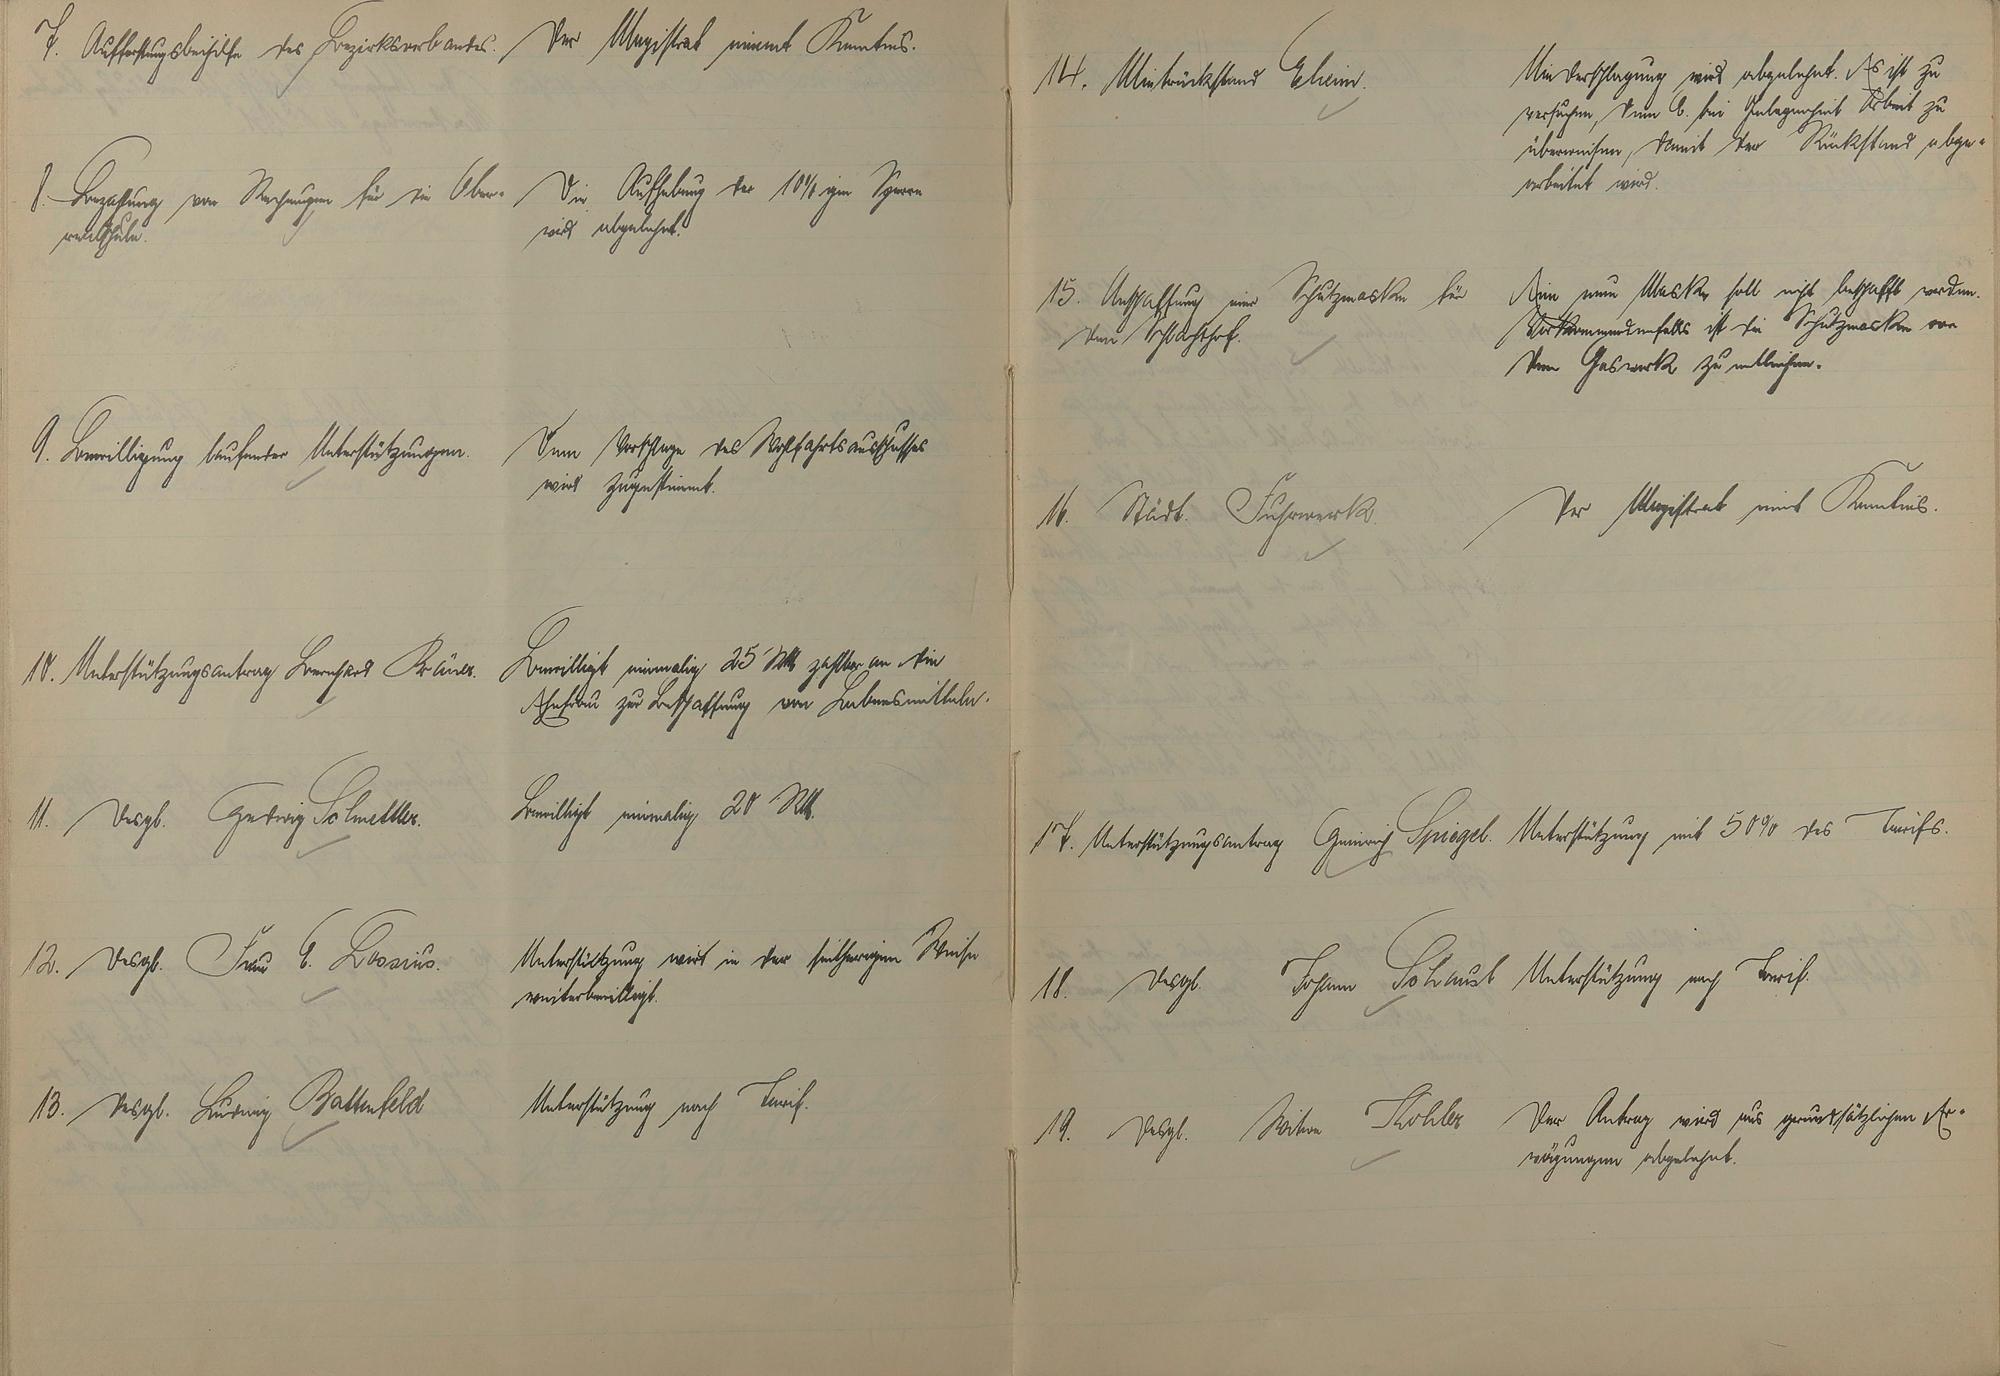 7. Aufforstungsbeihilfe des Bezirksverbandes.
Der Magistrat nimmt Kenntnis.
8. Bezahlung von Rechnungen für die Ober-
realschule.
Die Aufhebung der 10%igen Sperre
wird abgelehnt.
9. Bewilligung laufender Unterstützungen.
Dem Vorschlage des Wohlfahrtsausschusses
wird zugestimmt.
10. Unterstützungsantrag Bernhard Kräuer.
Bewilligt einmalig 25 RM zahlbar an die
Ehefrau zur Beschaffung von Lebensmitteln.
11. Desgl. Hedwig Schmettler.
Bewilligt einmalig 20 RM.
12. Desgl. Frau E. Lossius.
Unterstützung wird in der seitherigen Weise
weiterbewilligt.
13. Desgl. Ludwig Battenfeld
Unterstützung nach Tarif.
14. Mietrückstand Eheim.
Niederschlagung wird abgelehnt. Es ist zu
versuchen, dem E. bei Gelegenheit Arbeit zu
überweisen, damit der Rückstand abge-
arbeitet wird.
15. Anschaffung einer Schutzmaske für
den Schlachthof.
Eine neue Maske soll nicht beschafft werden.
Vorkommendenfalls ist die Schutzmaske von
dem Gaswerk zu entleihen.
16. Städt. Fuhrwerk.
Der Magistrat nimt Kenntnis.
17. Unterstützungsantrag Heinrich Spiegel.
Unterstützung mit 50% des Tarifs.
18. Desgl. Johann Schaust
Unterstützung nach Tarif.
19. Desgl. Witwe Köhler
Der Antrag wird aus grundsätzlichen Er-
wägungen abgelehnt.